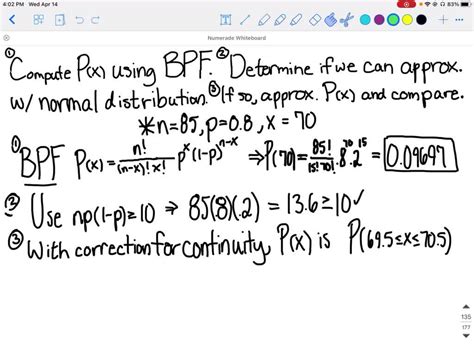 4:02 PM Wed Apr 14
83%
Numerade Whiteboard
① Compute P(x) using BPF. ② Determine if we can approx.
w/ normal distribution. ③ If so, approx. P(x) and compare.
* n=85, p=0.8, x=70
① BPF P(x)= n!/(n-x)!x! p^x (1-p)^n-x ⇒ P(70)= 85!/15!70! .8^70 .2^15 = 0.09697
② Use np(1-p)≥10 ⇒ 85(.8)(.2) = 13.6≥10 ✓
③ With correction for continuity, P(x) is P(69.5≤x≤70.5)
135
177